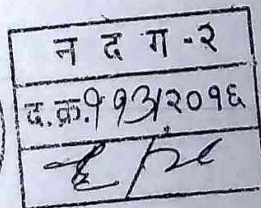 न द ग - २
द. क्र. ११३/२०१६
६/२८